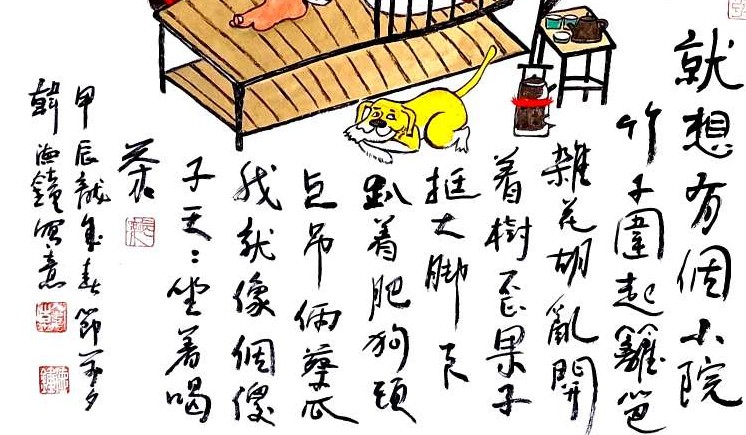 就想有個小院
竹子圍起籬笆
雜花胡亂開
着樹歪果子
挺大脚下
趴着肥狗頭
上吊俩瓜
我就像個傻
子天:坐着喝
茶
甲辰龍年春節前夕
韓德鐘寫意